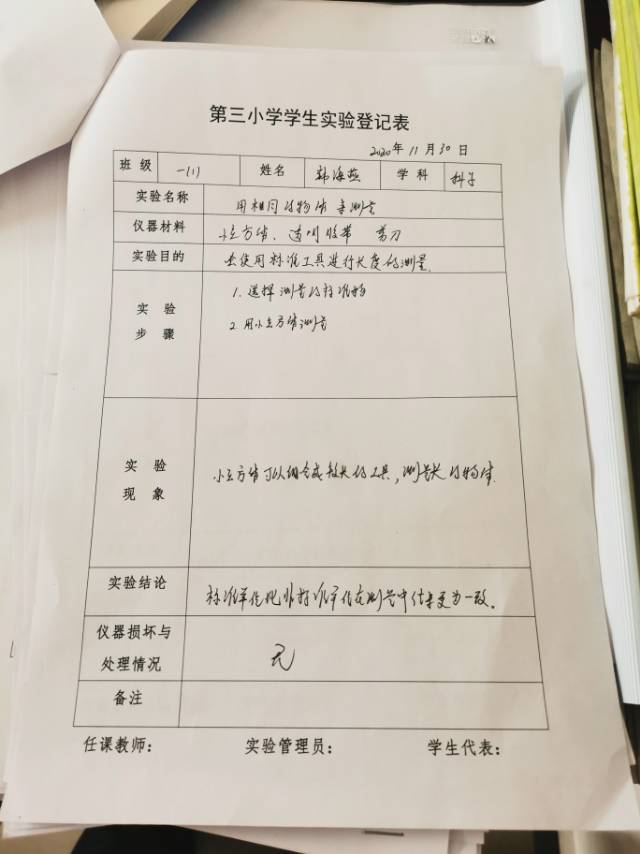 第三小学学生实验登记表
2020年11月30日
班级 一(1) 姓名 韩海燕 学科 科学
实验名称 用相同的物体来测量
仪器材料 小立方体、透明胶带 剪刀
实验目的 会使用标准工具进行长度的测量.
实验步骤 1. 选择测量的标准物
2. 用小立方体测量
实验现象 小立方体可以组合成较长的工具,测量长的物体.
实验结论 标准单位比非标准单位在测量中结果更为一致。
仪器损坏与处理情况 无
备注
任课教师: 实验管理员: 学生代表: